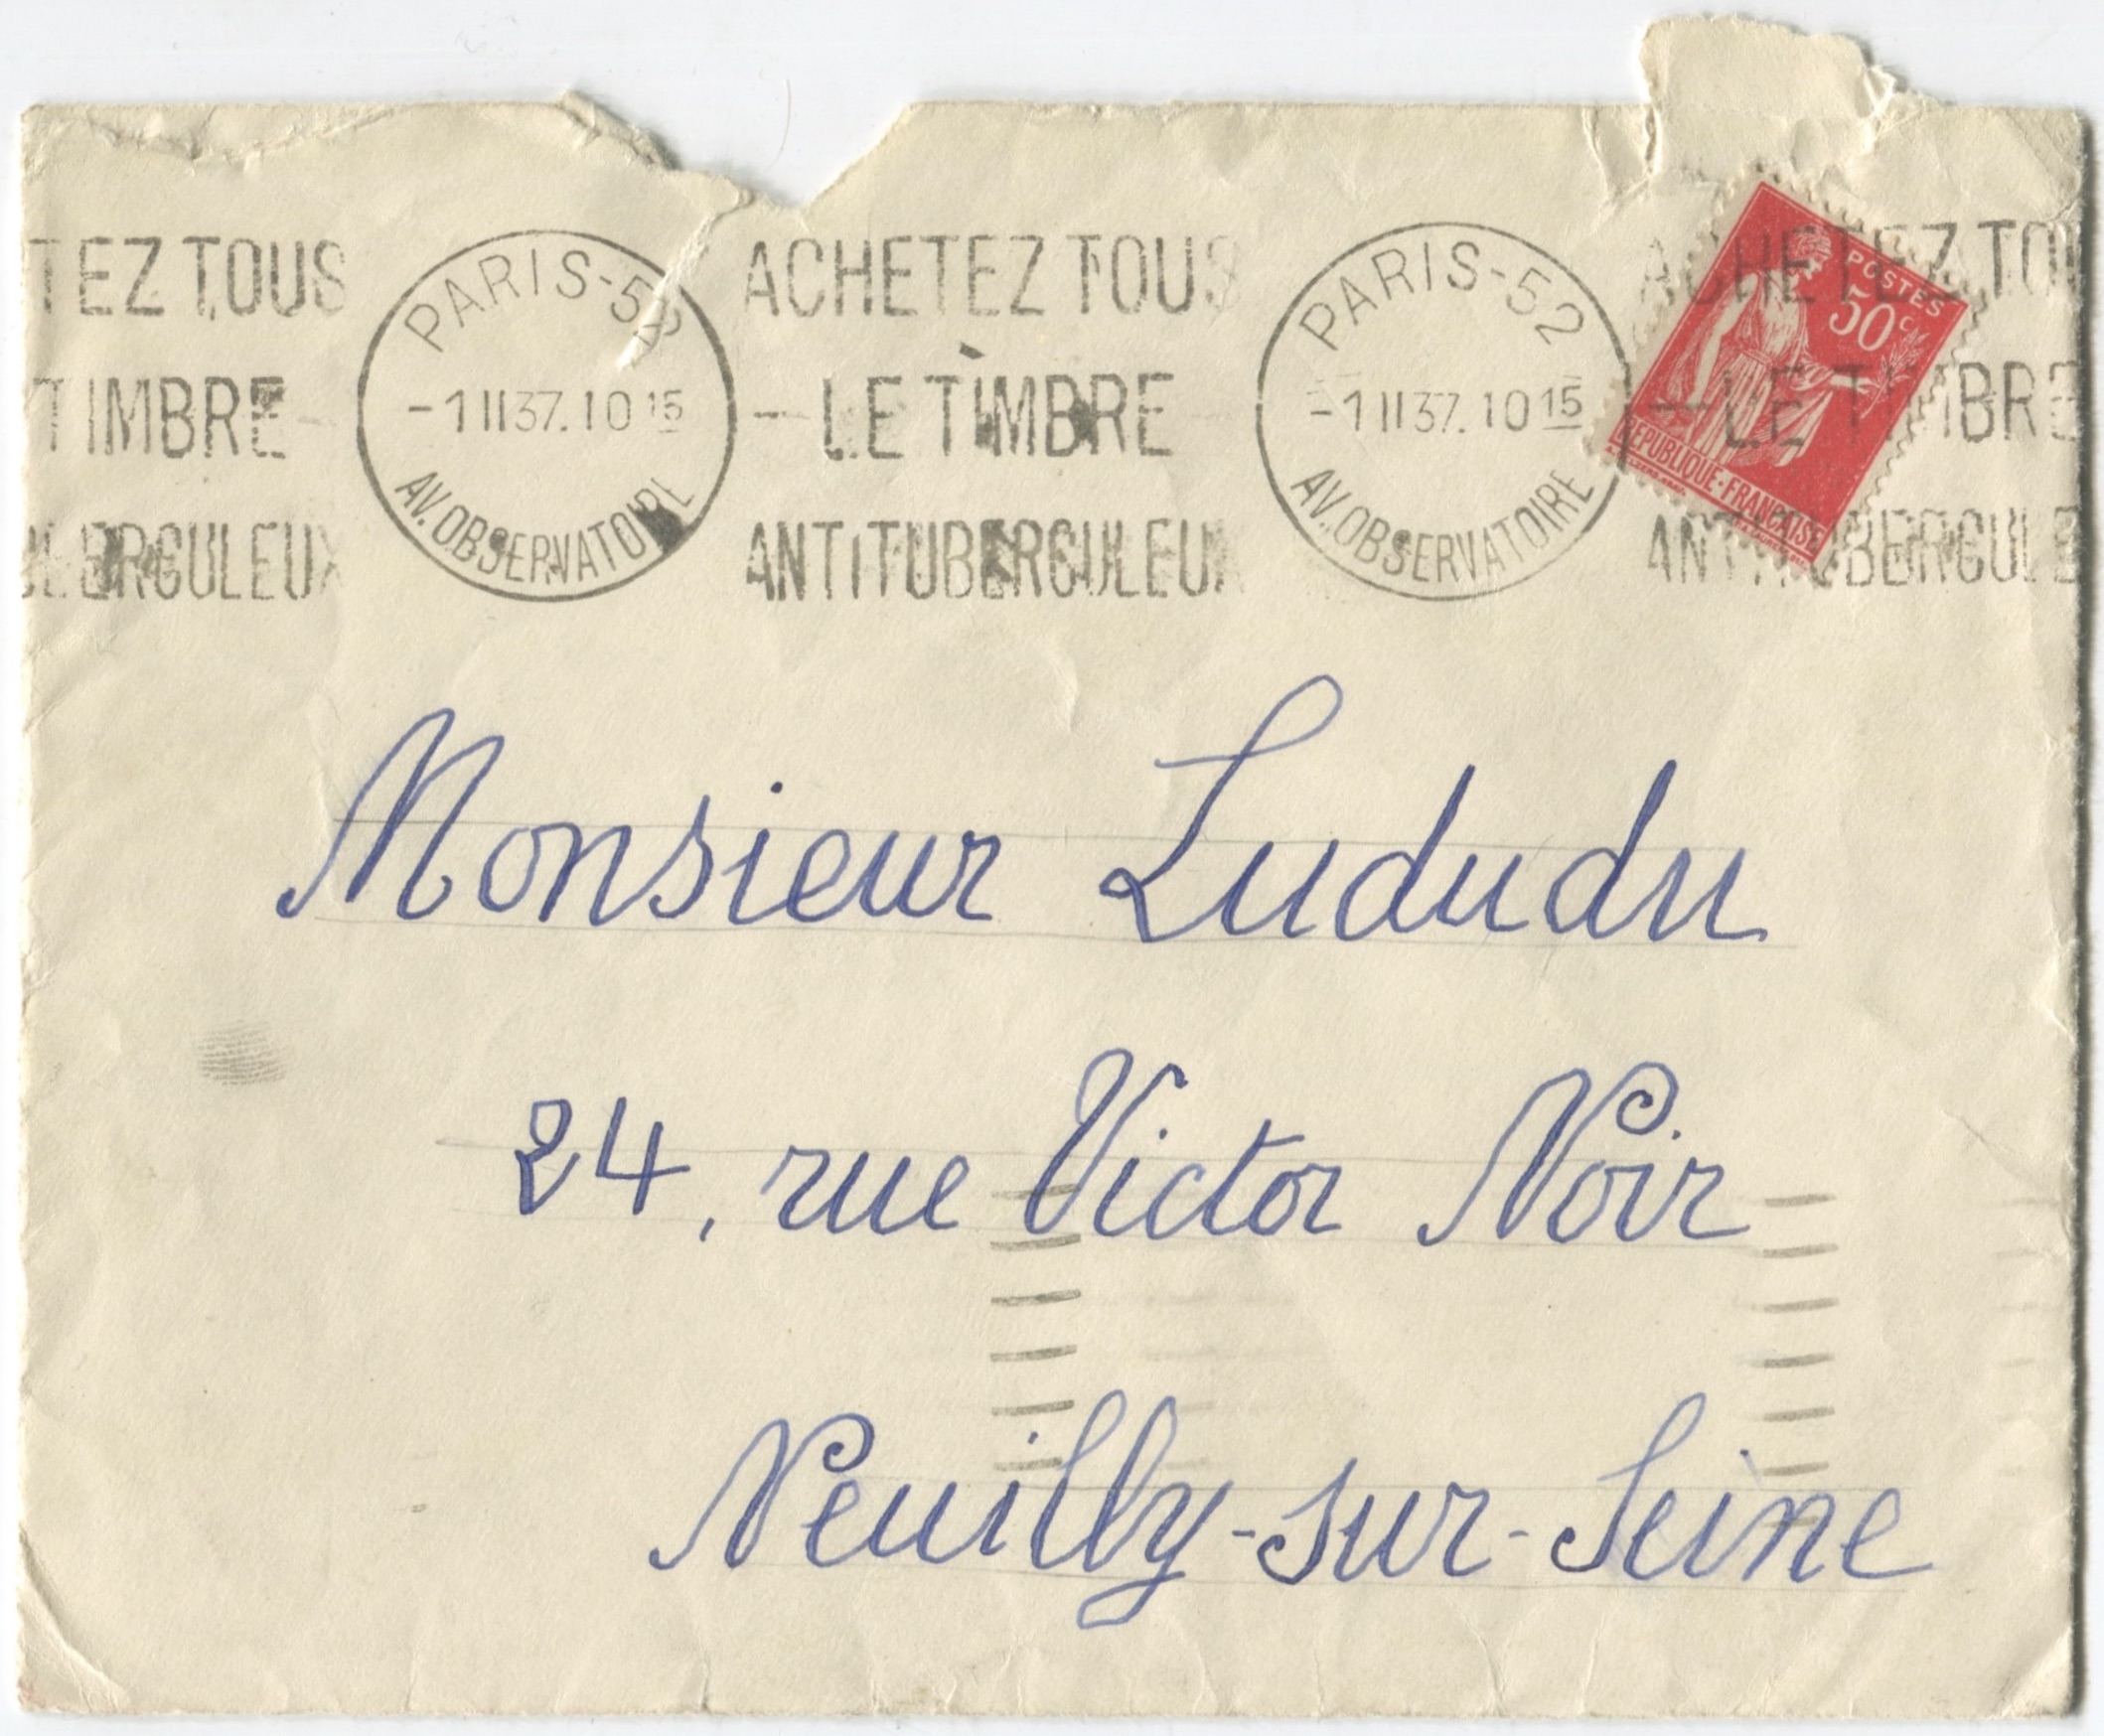 TEZ TOUS
TIMBRE -
BERCULEUX
PARIS-52
-1 II 37. 10 15
AV. OBSERVATOIRE
ACHETEZ TOUS
- LE TIMBRE -
ANTITUBERCULEUX
PARIS-52
-1 II 37. 10 15
AV. OBSERVATOIRE
ACHETEZ TOU
- LE TIMBRE
ANTITUBERCULE
POSTES
50c
REPUBLIQUE·FRANÇAISE
Monsieur Lududu
24, rue Victor Noir
Neuilly-sur-Seine